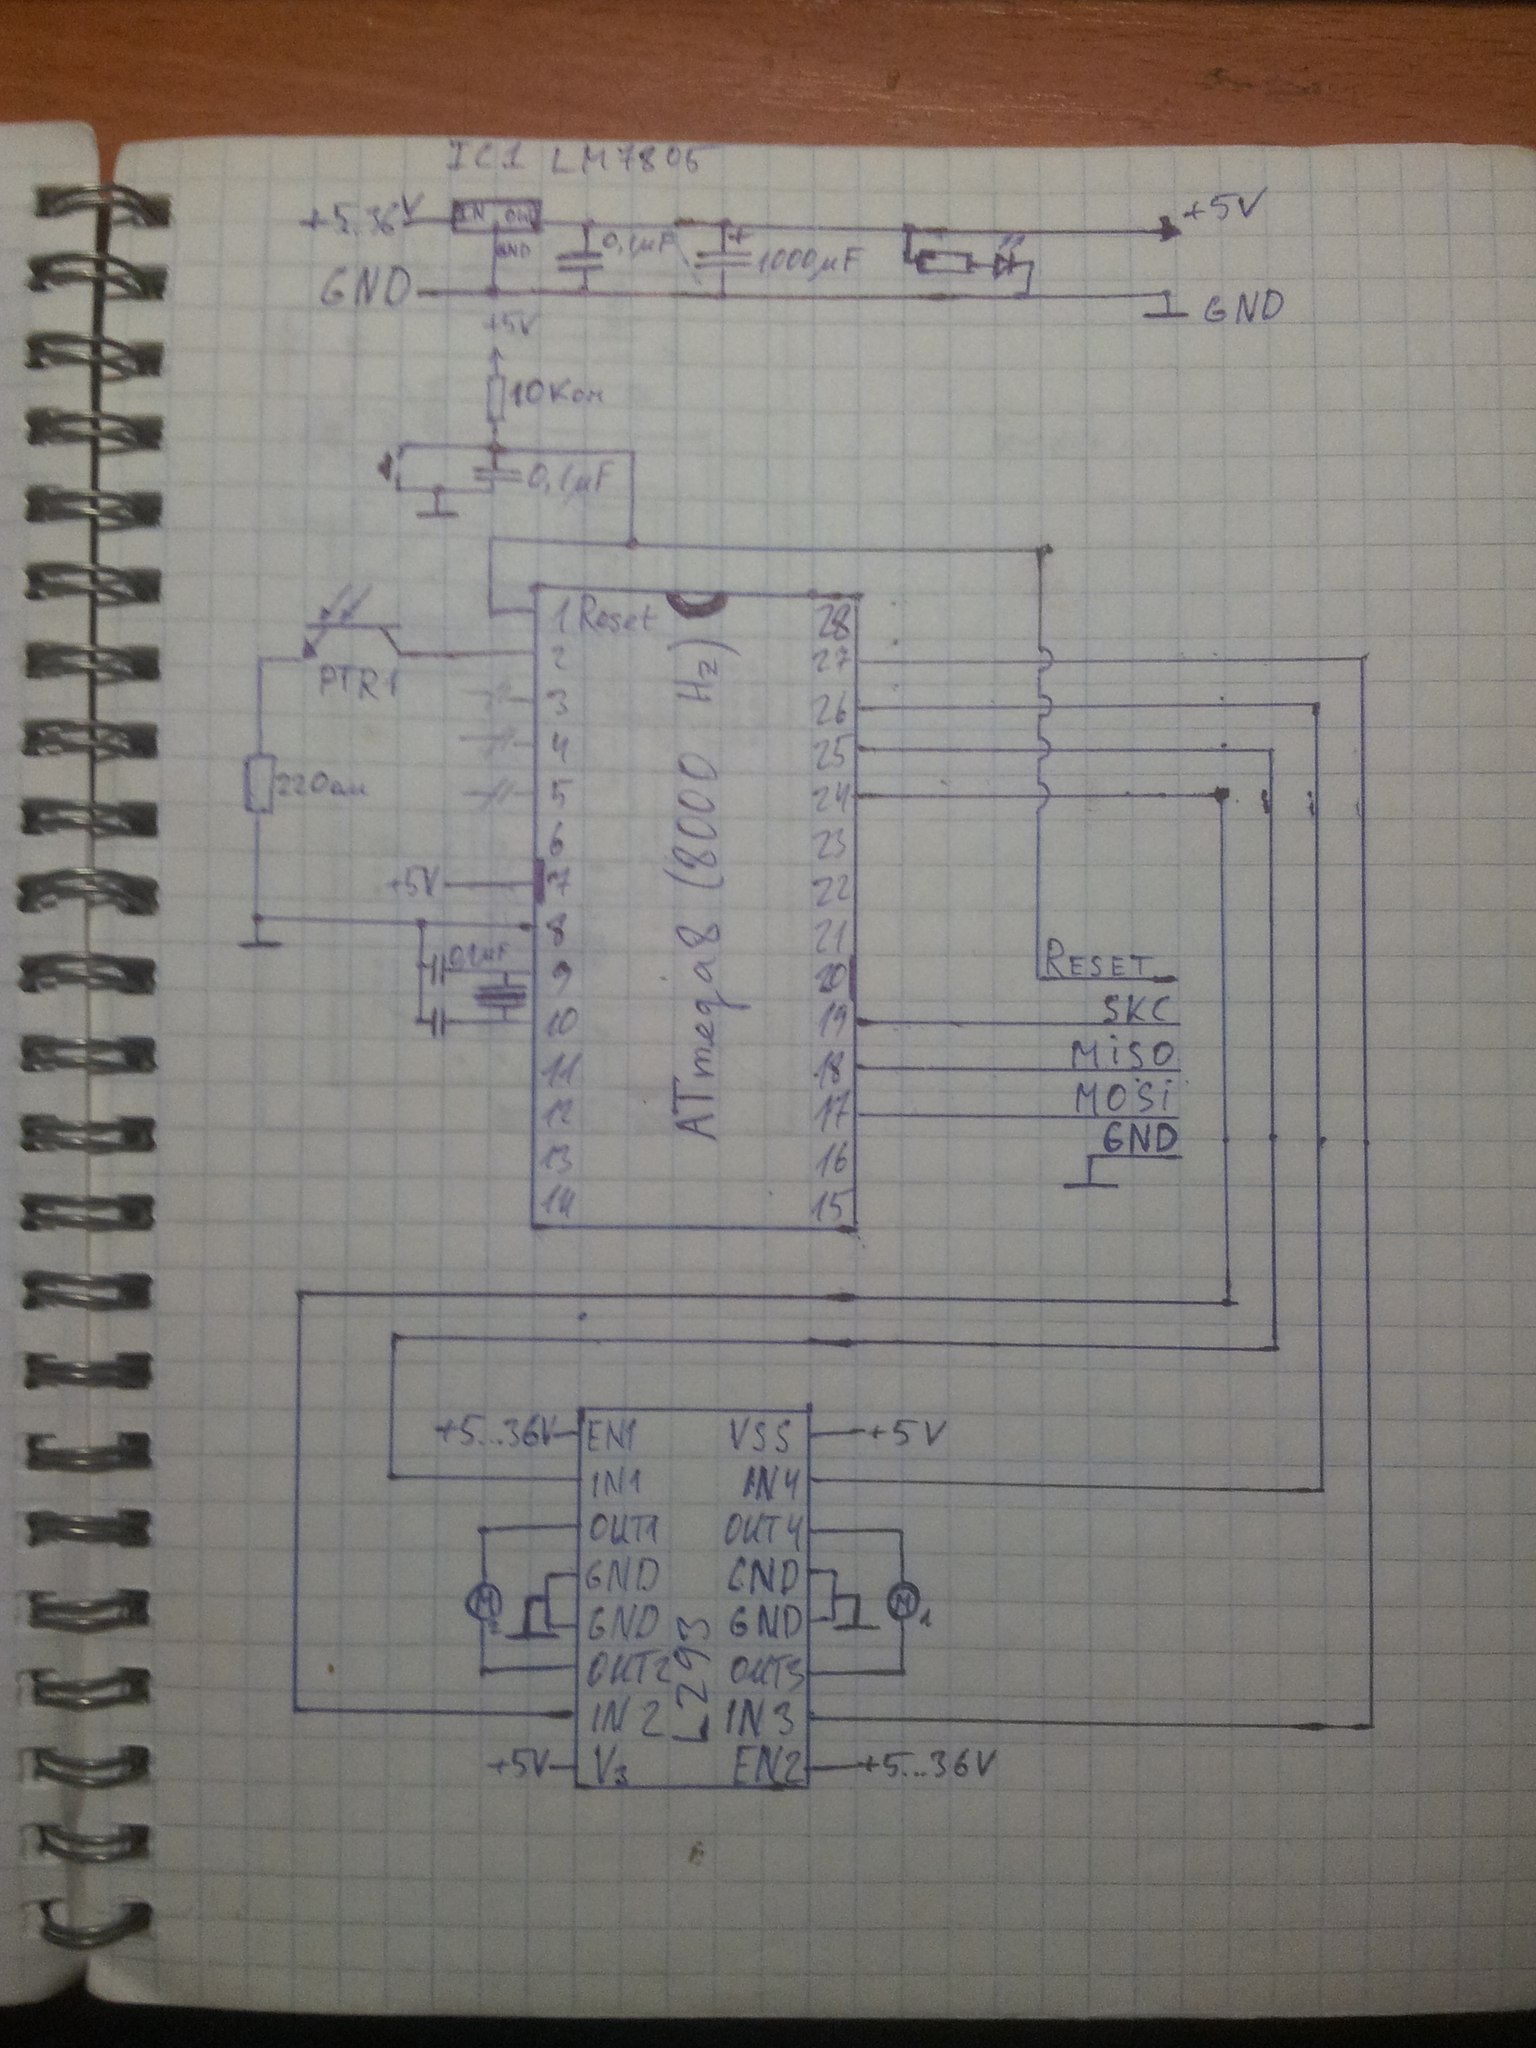 IC1 LM7805
+5..36V IN OUT +5V
GND 0,1µF + 1000µF
GND GND
+5V
10Kом
0,1µF
1 Reset 28
2 27
PTR1
3 26
4 25
220ом
5 24
6 23
+5V 7 22
8 21
0,1µF 9 20 RESET
10 19 SKC
11 18 MiSO
12 17 MOSi
GND
13 16
14 15
ATmega8 (8000 Hz)
+5...36V EN1 VSS +5V
IN1 IN4
OUT1 OUT4
GND GND
M M 1
GND GND
OUT2 OUT3
IN2 IN3
+5V V3 EN2 +5...36V
L293